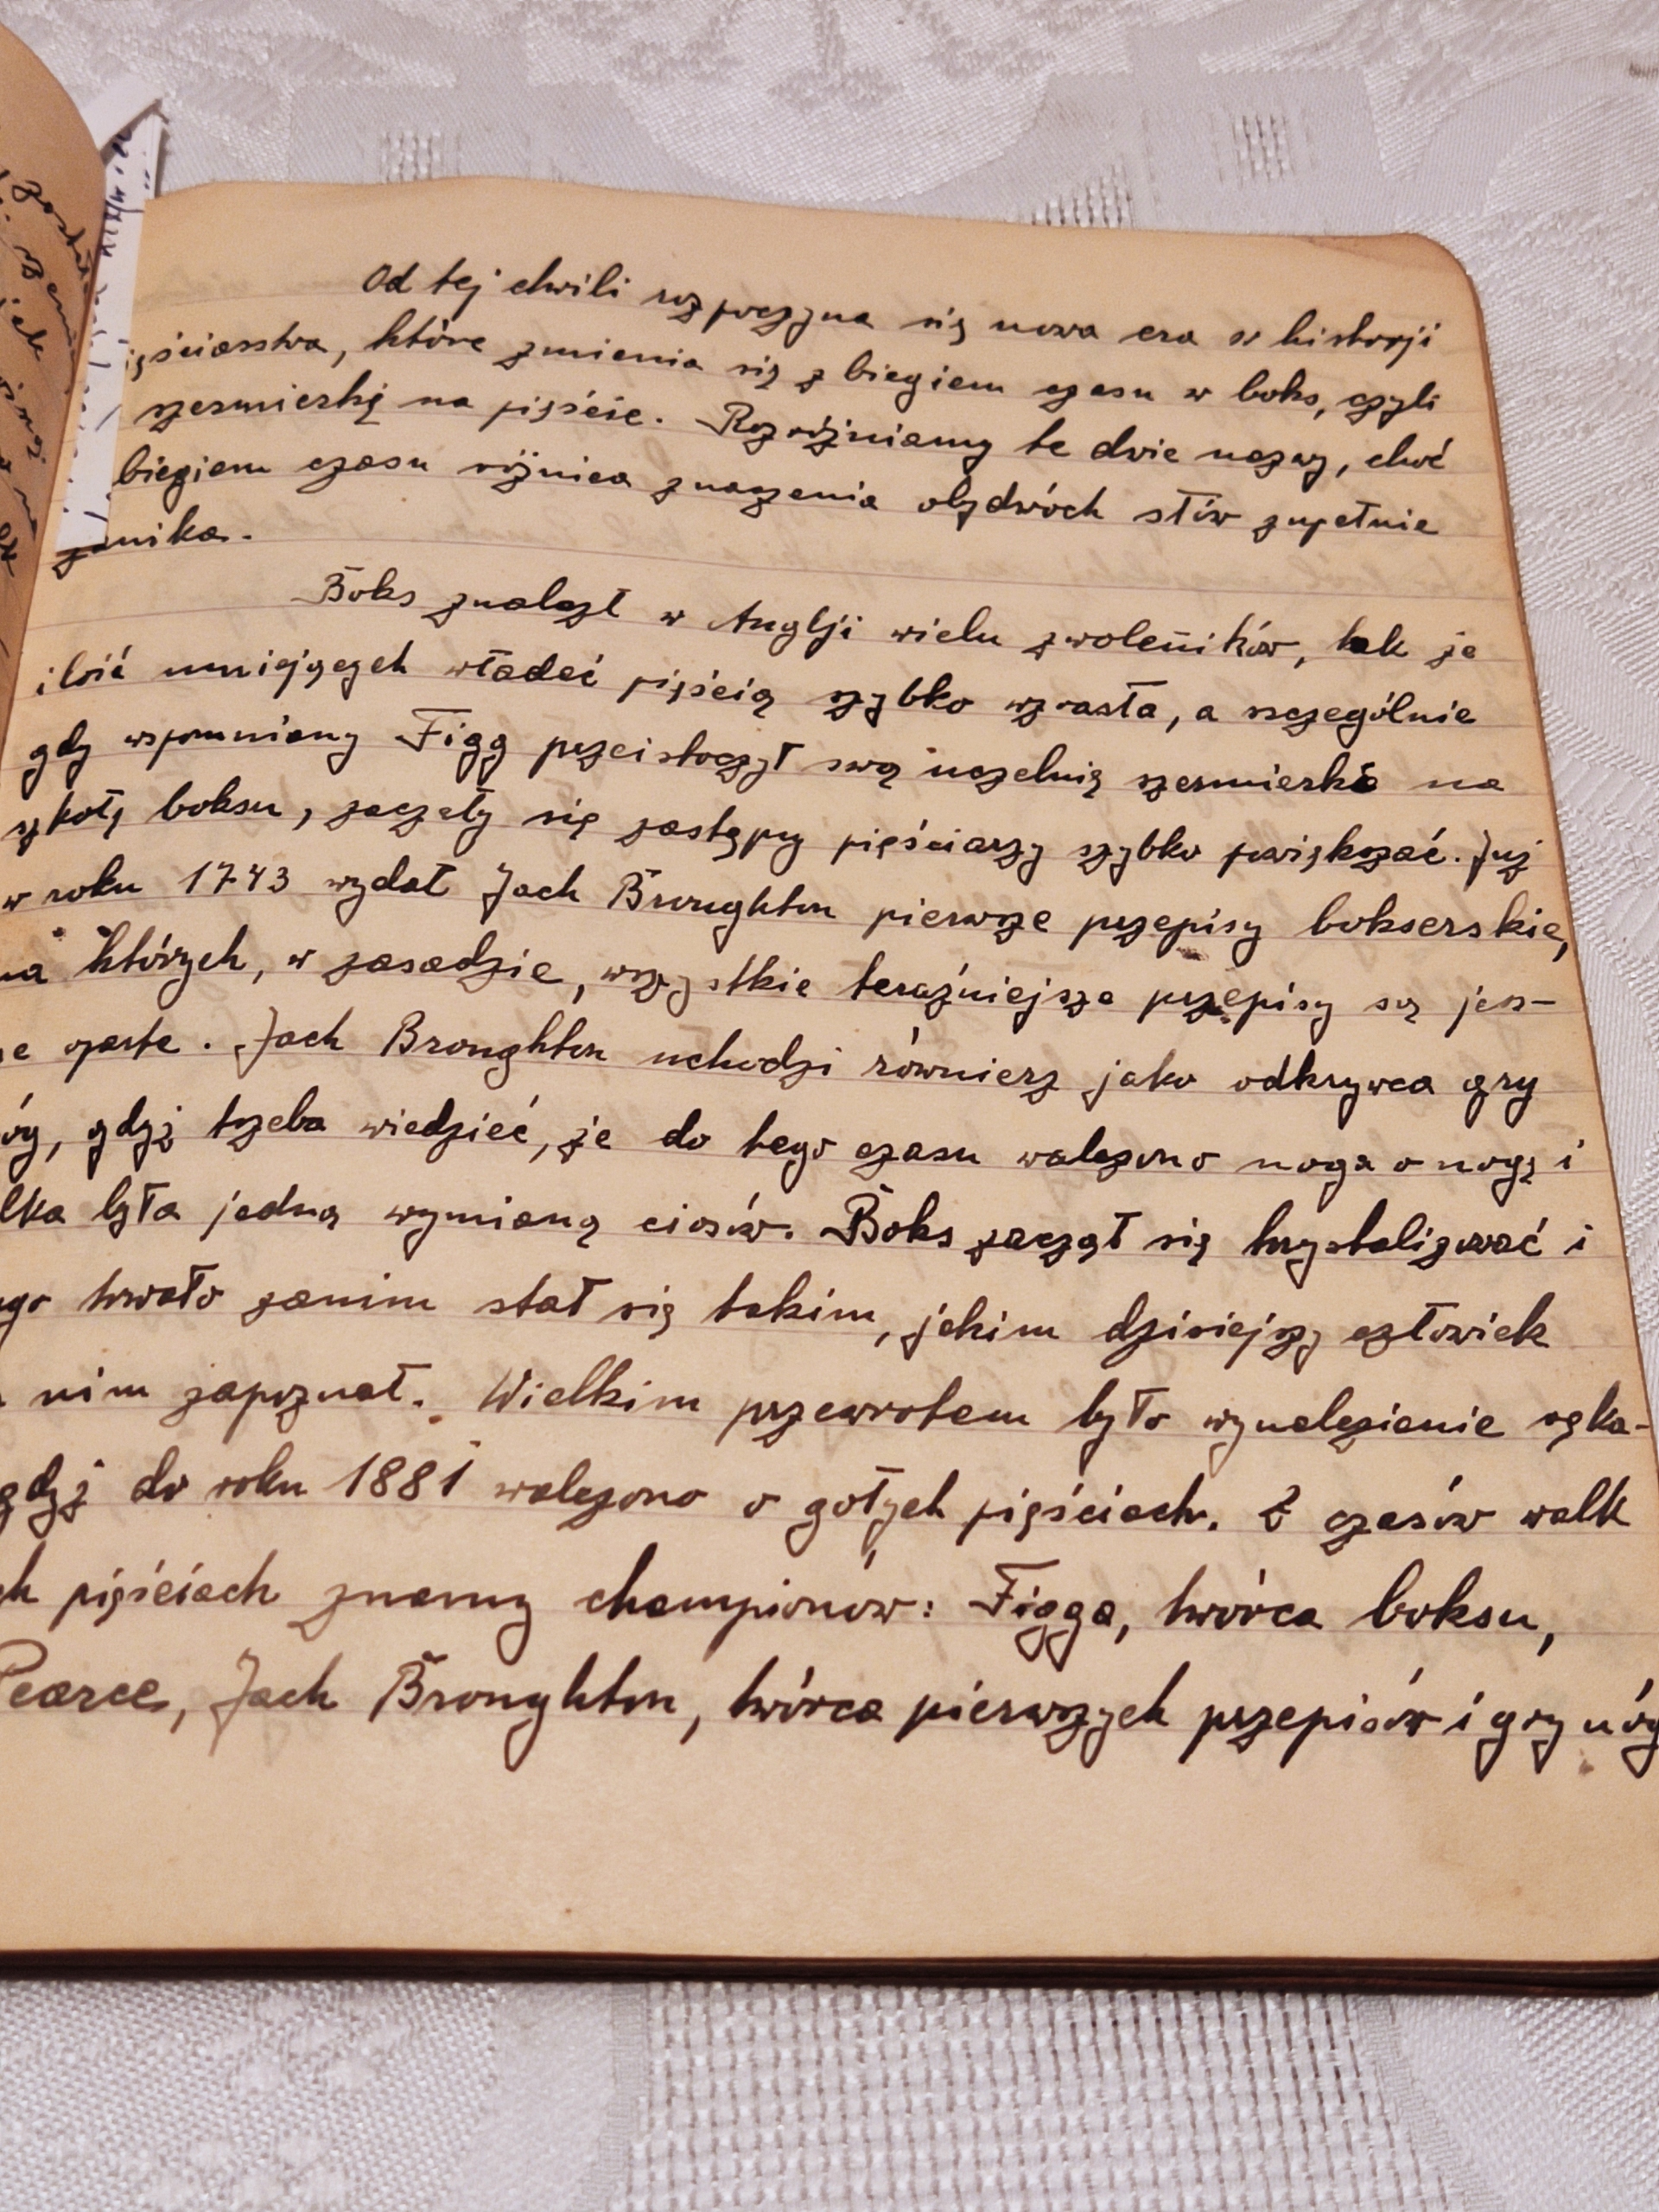 Od tej chwili rozpoczyna się nowa era w historji
ięściarstwa, które zmienia się z biegiem czasu w boks, czyli
szermierkę na pięście. Rozróżniamy te dwie nazwy, choć
biegiem czasu różnica znaczenia obydwóch słów zupełnie
zanika.
Boks znalazł w Anglji wielu zwolenników, tak że
ilość umiejących władać pięścią szybko wzrasta, a szczególnie
gdy wspomniany Figg przeistoczył swą uczelnią szermierki na
szkołę boksu, zaczęły się zastępy pięściarzy szybko powiększać. Już
w roku 1743 wydał Jack Broughton pierwsze przepisy bokserskie,
na których, w zasadzie, wszystkie teraźniejsze przepisy są jesz-
e oparte. Jack Broughton uchodzi równierz jako odkrywca gry
óg, gdyż trzeba wiedzieć, że do tego czasu walczono noga o nogę i
lka była jedną wymianą ciosów. Boks zaczął się krystalizować i
ugo trwało zanim stał się takim, jakim dzisiejszy człowiek
nim zapoznał. Wielkim przewrotem było wynalezienie ręka-
gdyż do roku 1881 walczono o gołych pięściach. Z czasów walk
ch pięściach znamy championów: Figga, twórca boksu,
Pearce, Jack Broughton, twórca pierwszych przepisów i gry nóg